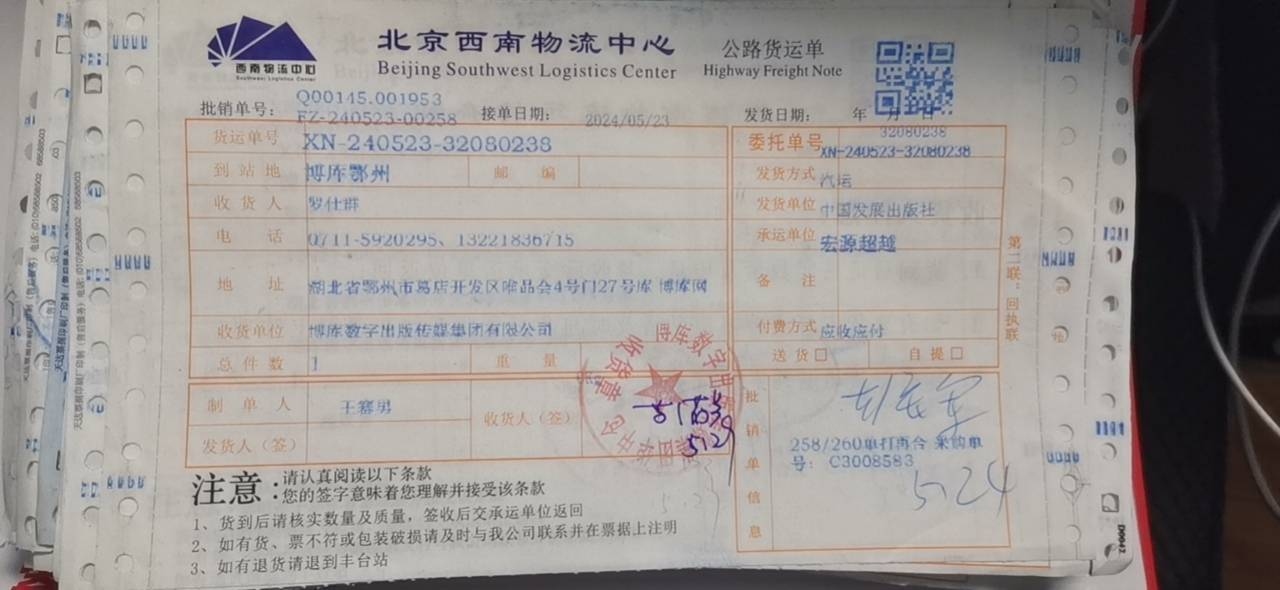 西南物流中心
Southwest Logistics Center
北京西南物流中心
Beijing Southwest Logistics Center
公路货运单
Highway Freight Note
批销单号：
Q00145.001953
FZ-240523-00258
接单日期：
2024/05/23
发货日期： 年 月 日
货运单号 XN-240523-32080238
32080238
委托单号 XN-240523-32080238
到站地 博库鄂州 邮编
发货方式 汽运
收货人 罗仕群
发货单位 中国发展出版社
电话 0711-5920295、13221836715
承运单位 宏源超越
地址 湖北省鄂州市葛店开发区唯品会4号门27号库 博库网
备注
收货单位 博库数字出版传媒集团有限公司
付费方式 应收应付
总件数 1 重量
送货 自提
第二联：回执联
制单人 王赛男
收货人（签）
5129
发货人（签）
批销单信息
258/260单打再合 采购单
号： C3008583
5.24
5.23
收货章
注意：
请认真阅读以下条款
您的签字意味着您理解并接受该条款
1、货到后请核实数量及质量，签收后交承运单位返回
2、如有货、票不符或包装破损请及时与我公司联系并在票据上注明
3、如有退货请退到丰台站
D0042